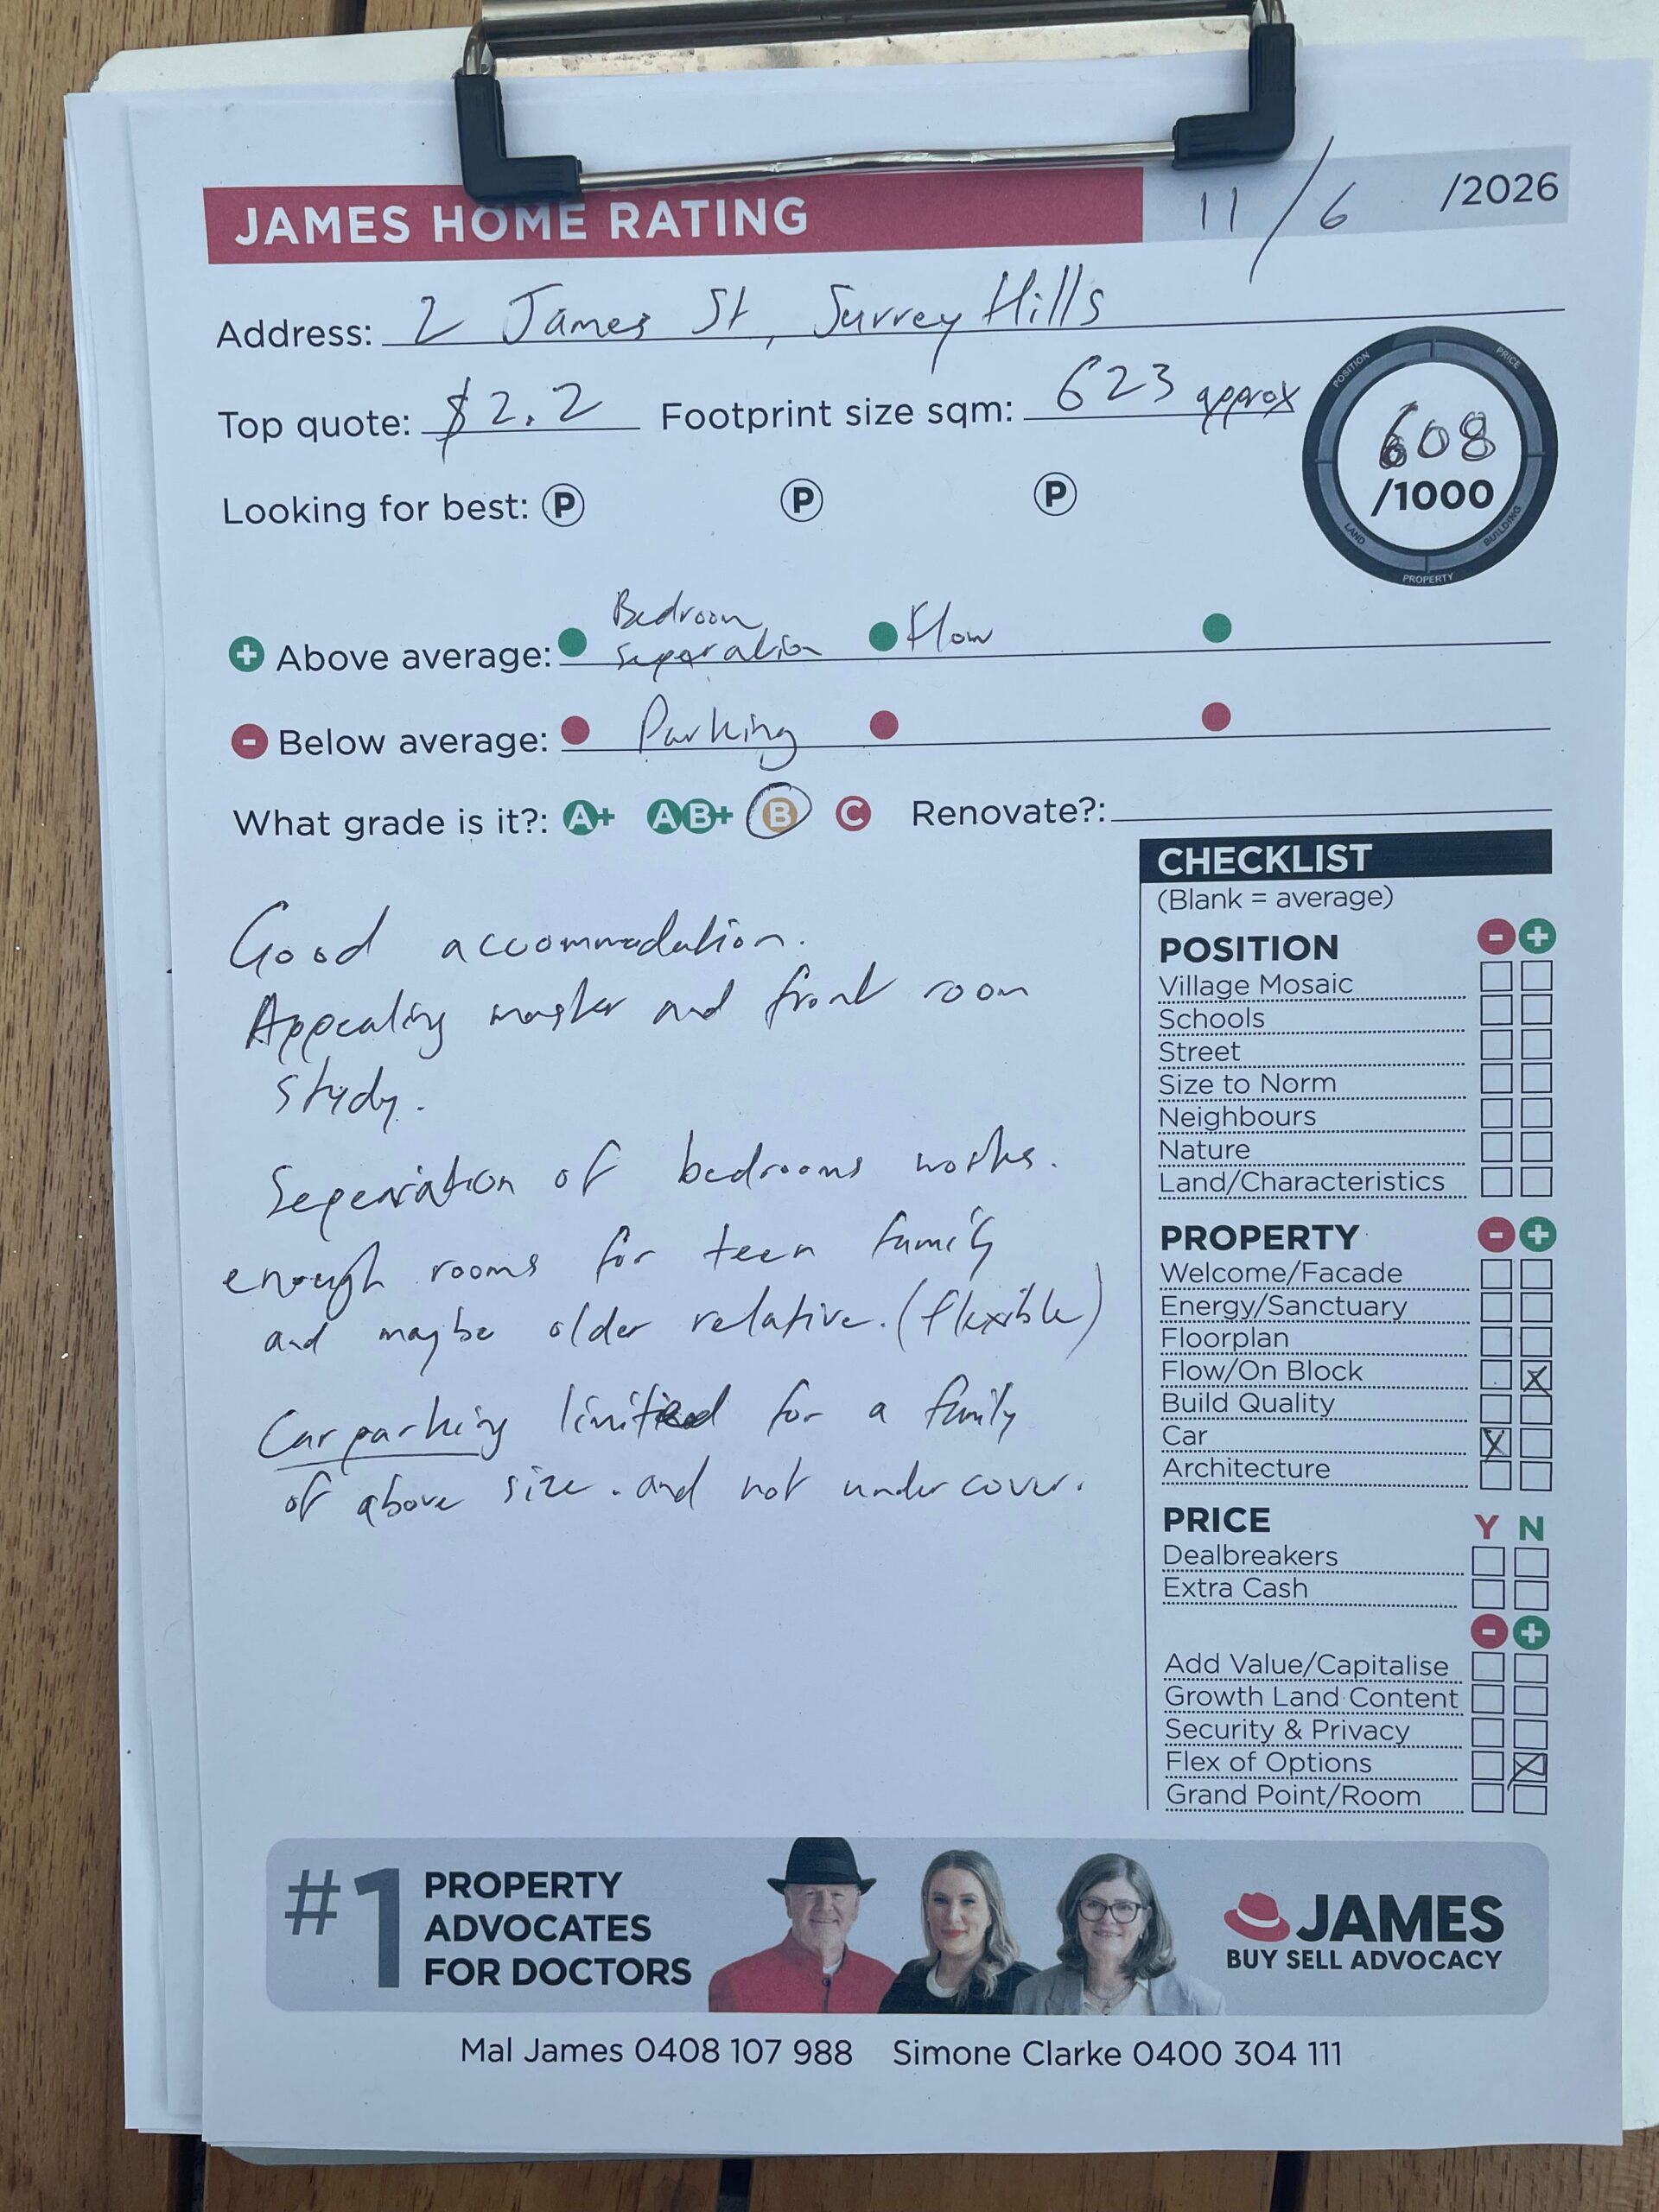 JAMES HOME RATING 11/6 /2026
Address: 2 James St, Surrey Hills
Top quote: $2.2 Footprint size sqm: 623 approx
POSITION PRICE
608
/1000
LAND BUILDING
PROPERTY
Looking for best: P P P
+ Above average: Bedroom Separation Flow
- Below average: Parking
What grade is it?: A+ AB+ B C Renovate?:
Good accommodation.
Appealing master and front room
study.
Seperation of bedrooms works.
enough rooms for teen family
and maybe older relative. (flexible)
Car parking limited for a family
of above size. and not under cover.
CHECKLIST
(Blank = average)
POSITION - +
Village Mosaic
Schools
Street
Size to Norm
Neighbours
Nature
Land/Characteristics
PROPERTY - +
Welcome/Facade
Energy/Sanctuary
Floorplan
Flow/On Block X
Build Quality
Car X
Architecture
PRICE Y N
Dealbreakers
Extra Cash
- +
Add Value/Capitalise
Growth Land Content
Security & Privacy
Flex of Options X
Grand Point/Room
#1 PROPERTY
ADVOCATES
FOR DOCTORS
JAMES
BUY SELL ADVOCACY
Mal James 0408 107 988 Simone Clarke 0400 304 111